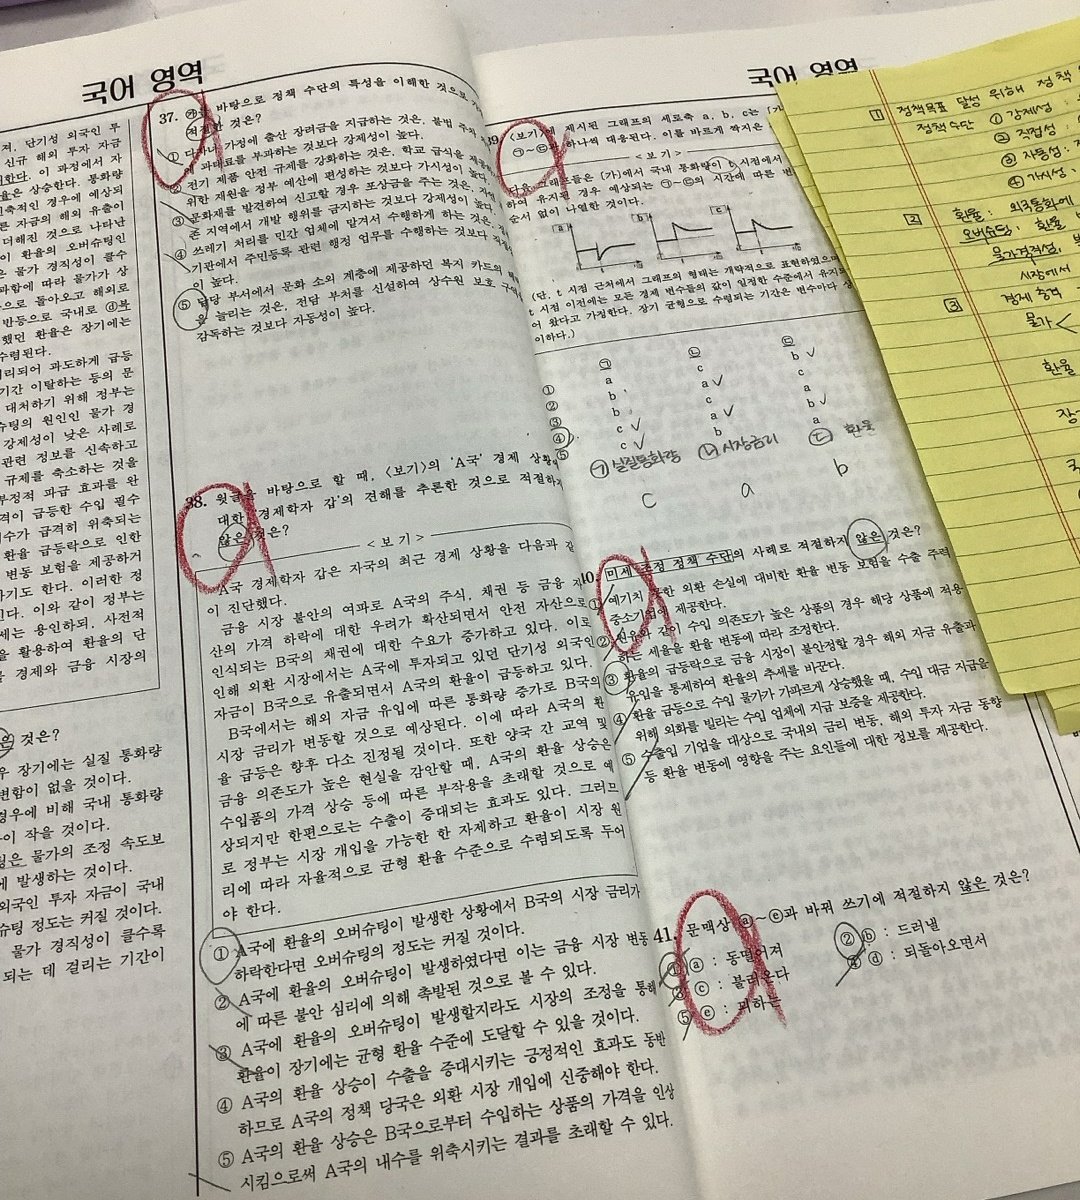 국어 영역
져, 단기성 외국인 투
신규 해외 투자 자금
이 과정에서 자
율은 상승한다. 통화량
신축적인 경우에 예상되
른 자금의 해외 유출이
더해진 것으로 나타난
이 환율의 오버슈팅인
은 물가 경직성이 클수
파함에 따라 물가가 상
으로 돌아오고 해외로
반등으로 국내로 ⓓ복
했던 환율은 장기에는
수렴된다.
리되어 과도하게 급등
기간 이탈하는 등의 문
대처하기 위해 정부는
슈팅의 원인인 물가 경
강제성이 낮은 사례로
관련 정보를 신속하고
규제를 축소하는 것을
부정적 파급 효과를 완
격이 급등한 수입 필수
수가 급격히 위축되는
환율 급등락으로 인한
변동 보험을 제공하거
하기도 한다. 이러한 정
된다. 이와 같이 정부는
세는 용인하되, 사전적
을 활용하여 환율의 단
경제와 금융 시장의
것은?
장기에는 실질 통화량
변함이 없을 것이다.
경우에 비해 국내 통화량
이 작을 것이다.
팅은 물가의 조정 속도보
에 발생하는 것이다.
외국인 투자 자금이 국내
슈팅 정도는 커질 것이다.
물가 경직성이 클수록
되는 데 걸리는 기간이
37. ㉮를 바탕으로 정책 수단의 특성을 이해한 것으로 가
적절한 것은?
① 다자녀 가정에 출산 장려금을 지급하는 것은, 불법 주차
에 과태료를 부과하는 것보다 강제성이 높다.
② 전기 제품 안전 규제를 강화하는 것은, 학교 급식을 제공
위한 재원을 정부 예산에 편성하는 것보다 가시성이 높다.
③ 문화재를 발견하여 신고할 경우 포상금을 주는 것은, 자연
존 지역에서 개발 행위를 금지하는 것보다 강제성이 높다.
④ 쓰레기 처리를 민간 업체에 맡겨서 수행하게 하는 것은,
기관에서 주민등록 관련 행정 업무를 수행하는 것보다 직접
이 높다.
⑤ 담당 부서에서 문화 소외 계층에 제공하던 복지 카드의 혜택
을 늘리는 것은, 전담 부처를 신설하여 상수원 보호 구역
감독하는 것보다 자동성이 높다.
38. 윗글을 바탕으로 할 때, <보기>의 'A국' 경제 상황
대한 '경제학자 갑'의 견해를 추론한 것으로 적절하지
않은 것은?
< 보 기 >
A국 경제학자 갑은 자국의 최근 경제 상황을 다음과 같
이 진단했다.
금융 시장 불안의 여파로 A국의 주식, 채권 등 금융 자
산의 가격 하락에 대한 우려가 확산되면서 안전 자산으로
인식되는 B국의 채권에 대한 수요가 증가하고 있다. 이로
인해 외환 시장에서는 A국에 투자되고 있던 단기성 외국인
자금이 B국으로 유출되면서 A국의 환율이 급등하고 있다.
B국에서는 해외 자금 유입에 따른 통화량 증가로 B국의
시장 금리가 변동할 것으로 예상된다. 이에 따라 A국의 환
율 급등은 향후 다소 진정될 것이다. 또한 양국 간 교역 및
금융 의존도가 높은 현실을 감안할 때, A국의 환율 상승은
수입품의 가격 상승 등에 따른 부작용을 초래할 것으로 예
상되지만 한편으로는 수출이 증대되는 효과도 있다. 그러므
로 정부는 시장 개입을 가능한 한 자제하고 환율이 시장 원
리에 따라 자율적으로 균형 환율 수준으로 수렴되도록 두어
야 한다.
① A국에 환율의 오버슈팅이 발생한 상황에서 B국의 시장 금리가
하락한다면 오버슈팅의 정도는 커질 것이다.
② A국에 환율의 오버슈팅이 발생하였다면 이는 금융 시장 변동
에 따른 불안 심리에 의해 촉발된 것으로 볼 수 있다.
③ A국에 환율의 오버슈팅이 발생할지라도 시장의 조정을 통해
환율이 장기에는 균형 환율 수준에 도달할 수 있을 것이다.
④ A국의 환율 상승이 수출을 증대시키는 긍정적인 효과도 동반
하므로 A국의 정책 당국은 외환 시장 개입에 신중해야 한다.
⑤ A국의 환율 상승은 B국으로부터 수입하는 상품의 가격을 인상
시킴으로써 A국의 내수를 위축시키는 결과를 초래할 수 있다.
국어 영역
<보기>에 제시된 그래프의 세로축 a, b, c는 [가
㉠~㉢과 하나씩 대응된다. 이를 바르게 짝지은
< 보 기 >
다음 그래프들은 [가]에서 국내 통화량이 t 시점에서
하여 유지된 경우 예상되는 ㉠~㉢의 시간에 따른 변
순서 없이 나열한 것이다.
a b c
(단, t 시점 근처에서 그래프의 형태는 개략적으로 표현하였으며
t 시점 이전에는 모든 경제 변수들의 값이 일정한 수준에서 유지되
어 왔다고 가정한다. 장기 균형으로 수렴되는 기간은 변수마다 상
이하다.)
㉠ ㉡ ㉢
① a c b ✓
② b a ✓ c
③ b c a
④ c ✓ a ✓ b ✓
⑤ c ✓ b a
㉠ 실질통화량 ㉡ 시장금리 ㉢ 환율
c a b
40. 미세 조정 정책 수단의 사례로 적절하지 않은 것은?
① 예기치 못한 외환 손실에 대비한 환율 변동 보험을 수출 주력
중소기업에 제공한다.
② 원유와 같이 수입 의존도가 높은 상품의 경우 해당 상품에 적용
하는 세율을 환율 변동에 따라 조정한다.
③ 환율의 급등락으로 금융 시장이 불안정할 경우 해외 자금 유출과
유입을 통제하여 환율의 추세를 바꾼다.
④ 환율 급등으로 수입 물가가 가파르게 상승했을 때, 수입 대금 지급을
위해 외화를 빌리는 수입 업체에 지급 보증을 제공한다.
⑤ 수출입 기업을 대상으로 국내외 금리 변동, 해외 투자 자금 동향
등 환율 변동에 영향을 주는 요인들에 대한 정보를 제공한다.
41. 문맥상 ⓐ~ⓔ과 바꿔 쓰기에 적절하지 않은 것은?
① ⓐ : 동떨어져 ② ⓑ : 드러낼
③ ⓒ : 불러온다 ④ ⓓ : 되돌아오면서
⑤ ⓔ : 꾀하는
1 정책목표 달성 위해 정책
정책수단 ① 강제성 :
② 직접성 :
③ 자동성 :
④ 가시성 :
2 환율 : 외국통화에
오버슈팅, 환율
물가경직성,
시장에서
3 경제 충격
물가
환율